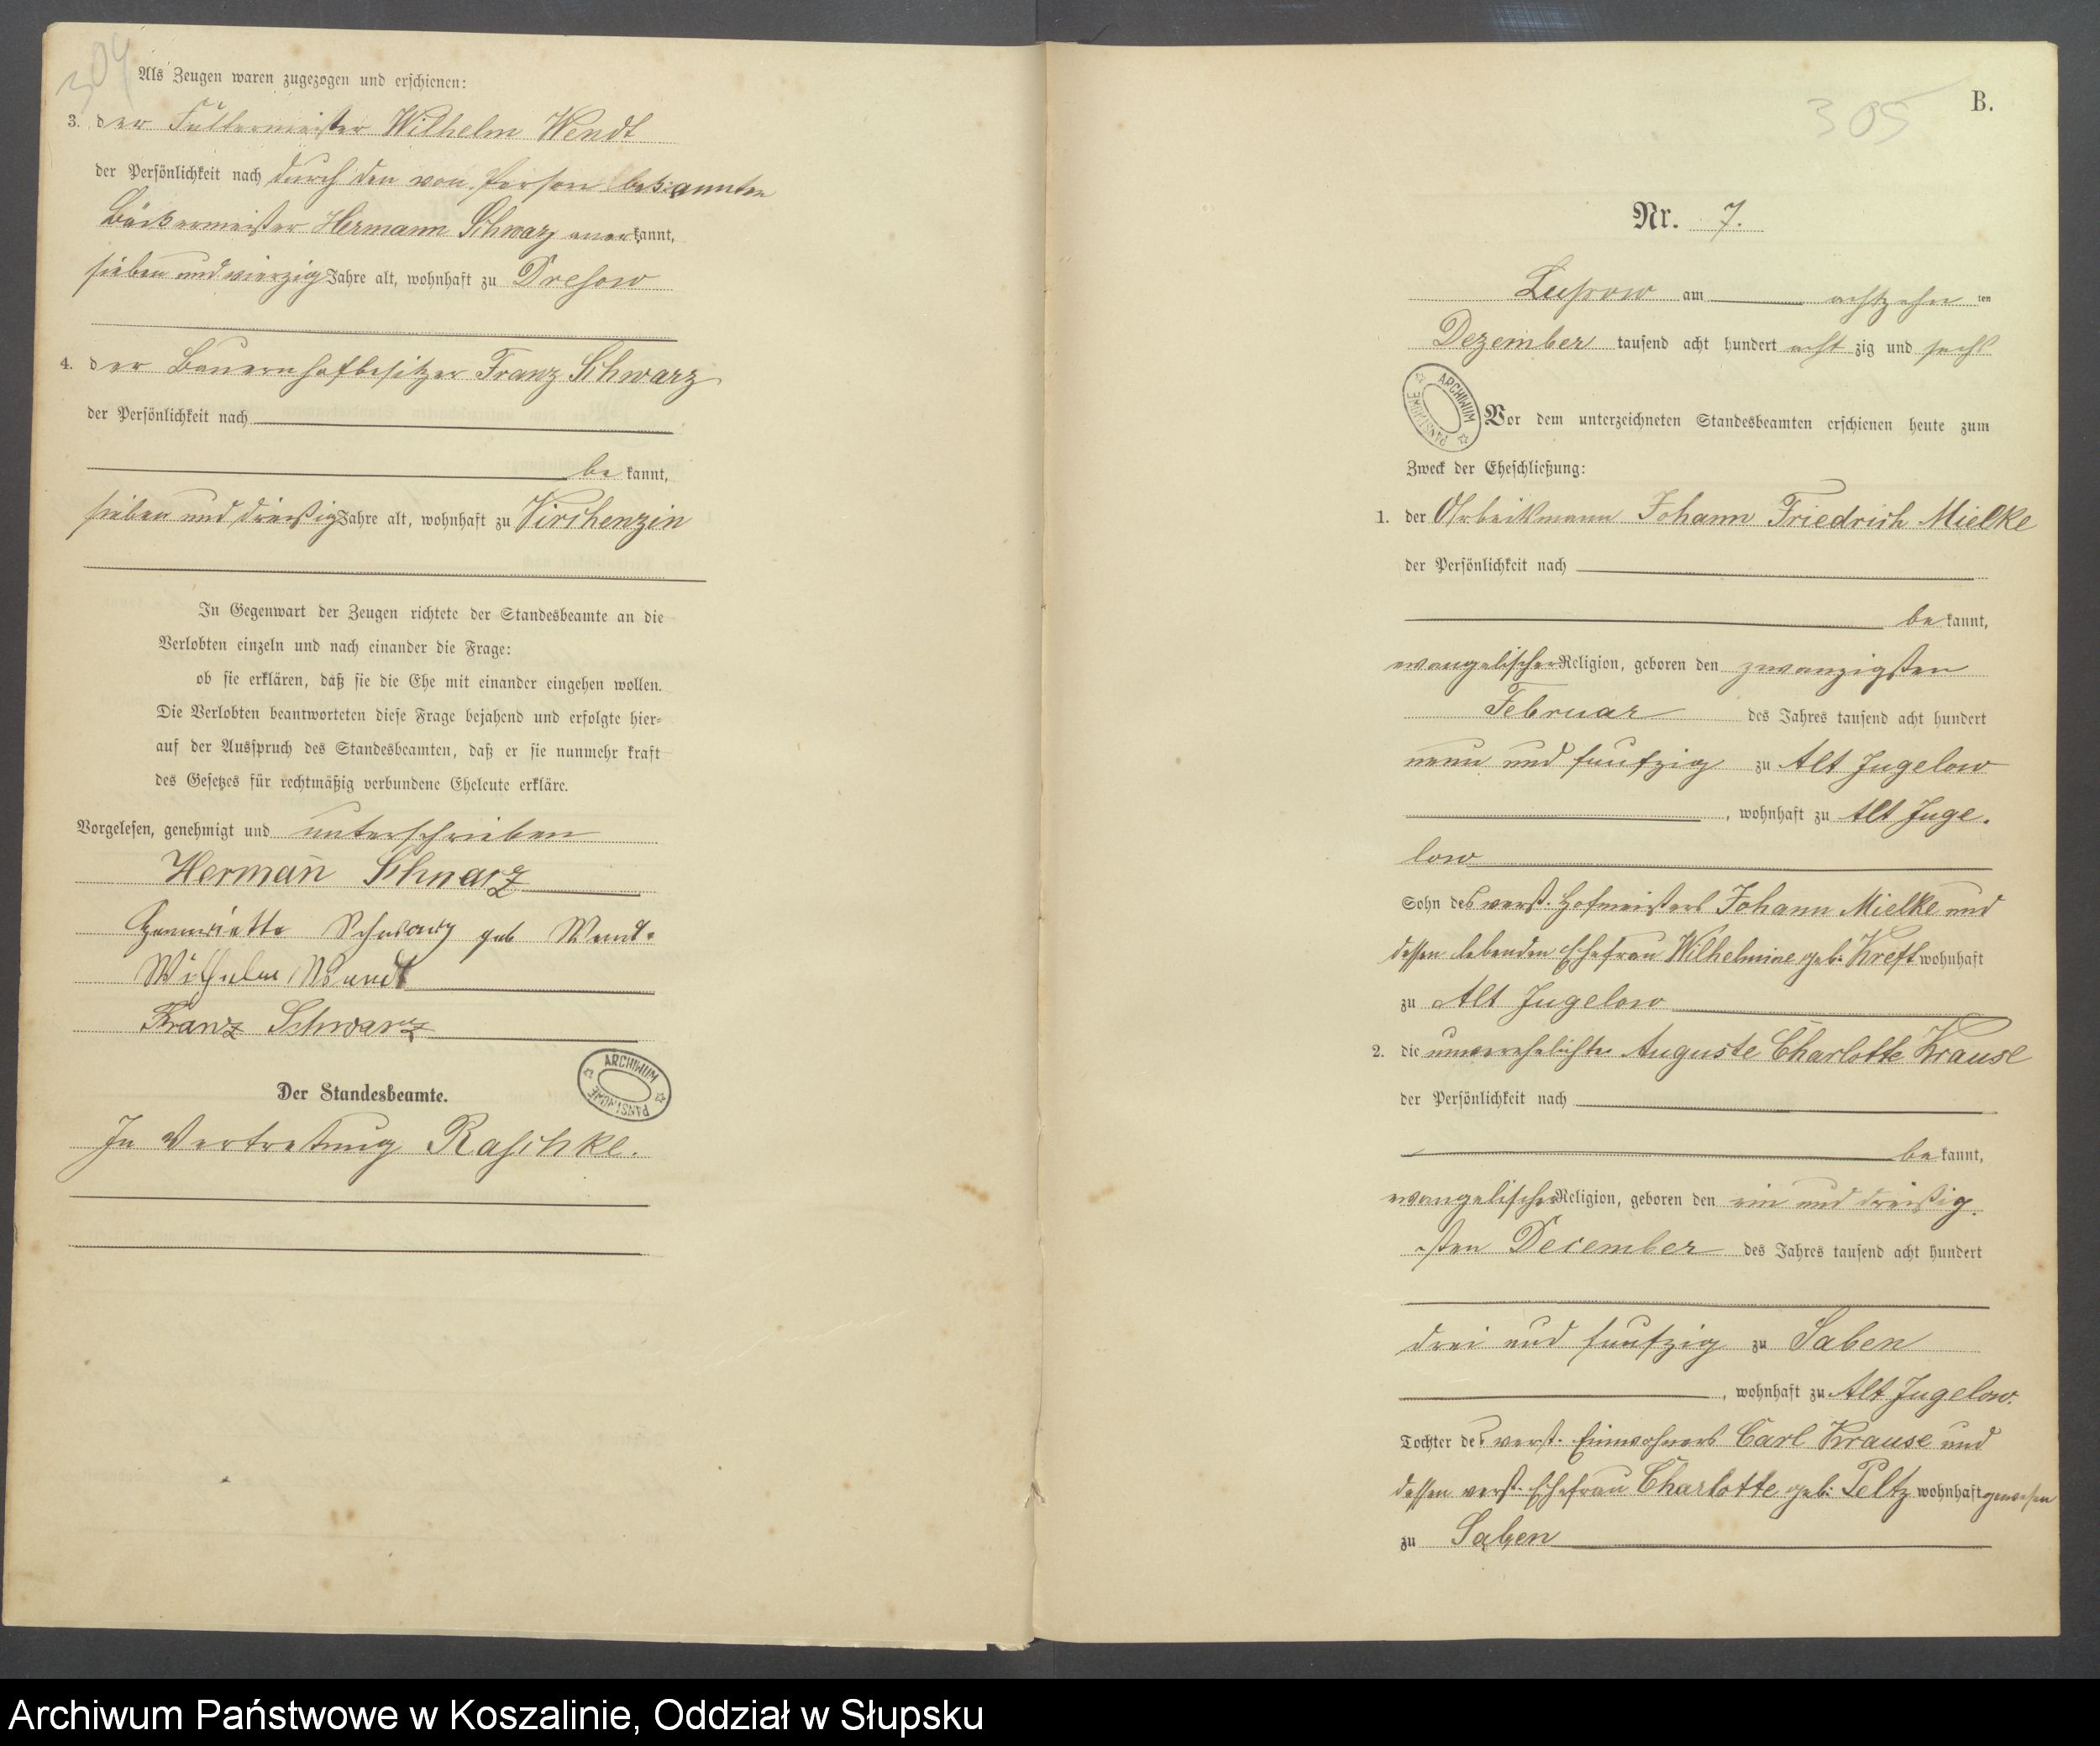 304
Als Zeugen waren zugezogen und erschienen:
3. der Futtermeister Wilhelm Wendt
der Persönlichkeit nach durch den von Person bekannten
Bäckermeister Hermann Schwarz anerkannt,
sieben und vierzig Jahre alt, wohnhaft zu Dresow
4. der Bauernhofbesitzer Franz Schwarz
der Persönlichkeit nach
be kannt,
sieben und dreißig Jahre alt, wohnhaft zu Virchenzin
In Gegenwart der Zeugen richtete der Standesbeamte an die
Verlobten einzeln und nach einander die Frage:
ob sie erklären, daß sie die Ehe mit einander eingehen wollen.
Die Verlobten beantworteten diese Frage bejahend und erfolgte hier-
auf der Ausspruch des Standesbeamten, daß er sie nunmehr kraft
des Gesetzes für rechtmäßig verbundene Eheleute erkläre.
Vorgelesen, genehmigt und unterschrieben
Herman̄ Schwarz
Henriette Schwarz geb Wendt.
Wilhelm Wendt
Franz Schwarz
ARCHIWUM PAŃSTWOWE
Der Standesbeamte.
In Vertretung Raschke.
305
B.
Nr. 7.
Lupow am achtzehn ten
Dezember tausend acht hundert acht zig und sechs
ARCHIWUM PAŃSTWOWE
Vor dem unterzeichneten Standesbeamten erschienen heute zum
Zweck der Eheschließung:
1. der Arbeitsmann Johann Friedrich Mielke
der Persönlichkeit nach
be kannt,
evangelischer Religion, geboren den zwanzigsten
Februar des Jahres tausend acht hundert
neun und funfzig zu Alt Jugelow
, wohnhaft zu Alt Juge.
low
Sohn des verst. Hofmeisters Johann Mielke und
dessen lebenden Ehefrau Wilhelmine geb. Kreft wohnhaft
zu Alt Jugelow
2. die unverehelichte Auguste Charlotte Krause
der Persönlichkeit nach
be kannt,
evangelischer Religion, geboren den ein und dreißig.
sten December des Jahres tausend acht hundert
drei und funfzig zu Saben
, wohnhaft zu Alt Jugelow.
Tochter des verst. Einwohners Carl Krause und
dessen verst. Ehefrau Charlotte geb: Peltz wohnhaft gewesen
zu Saben
Archiwum Państwowe w Koszalinie, Oddział w Słupsku